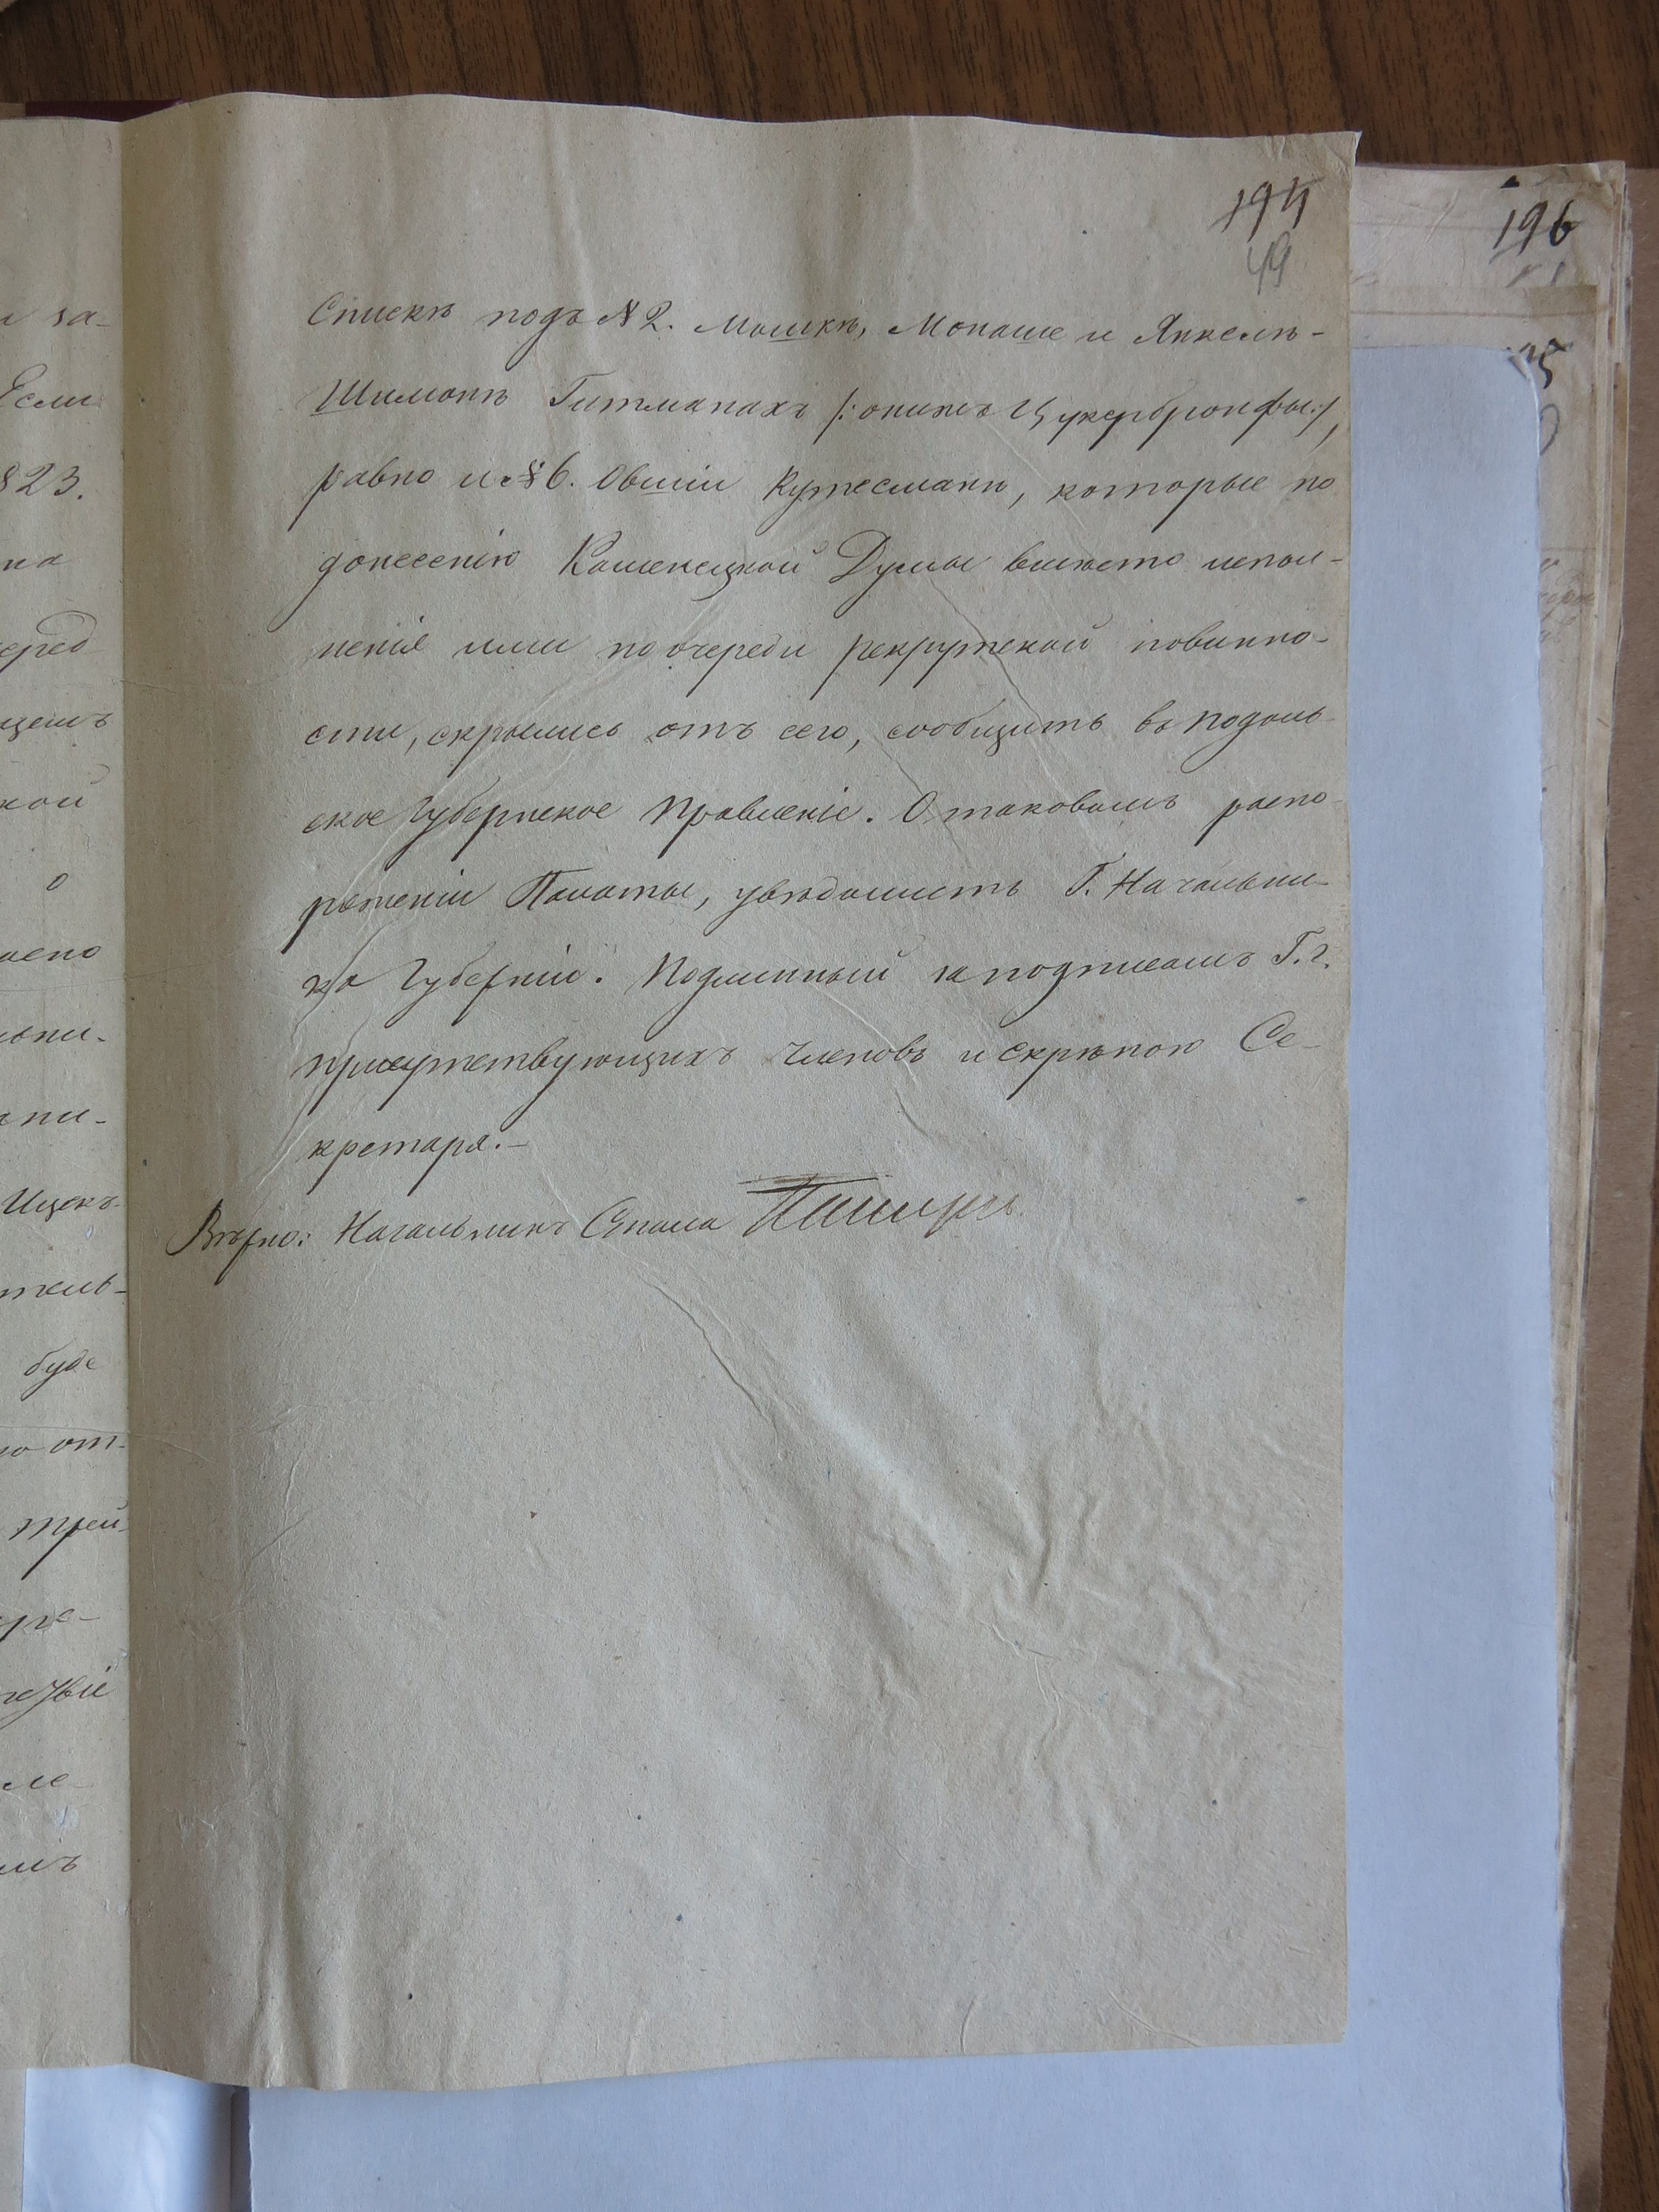 194
49
196
Спискѣ подъ № 2. Мошкѣ, Монаше и Янкель-
Шимонѣ Гитманахъ /: онижъ Цукербронфы :/,
равно и № 6. Овшіи Кутесманѣ, которые по
донесенію Каменецкой Думы вмѣсто испол-
ненія ими по очереди рекрутской повинно-
сти, скрылись отъ сего, сообщить въ Подоль-
ское Губернское Правленіе. О таковомъ распо-
ряженіи Палаты, увѣдомить Г. Начальни-
ка Губерніи. Подлинный за подписомъ Г. г.
присутствующихъ членовъ и скрѣпою Се-
кретаря.-
Вѣрно: Начальникъ Стола
а за-
Если
823.
на
черед
щемъ
кой
о
Ицекъ
буде
от-